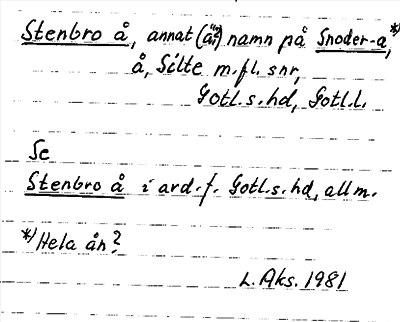 Stenbro å, annat (ä.?) namn på Snoder-a,*)
å, Silte m.fl. snr,
Gotl.s.hd, Gotl.l.
Se
Stenbro å i ard.f. Gotl.s.hd, allm.
*) Hela ån?
L. Aks. 1981